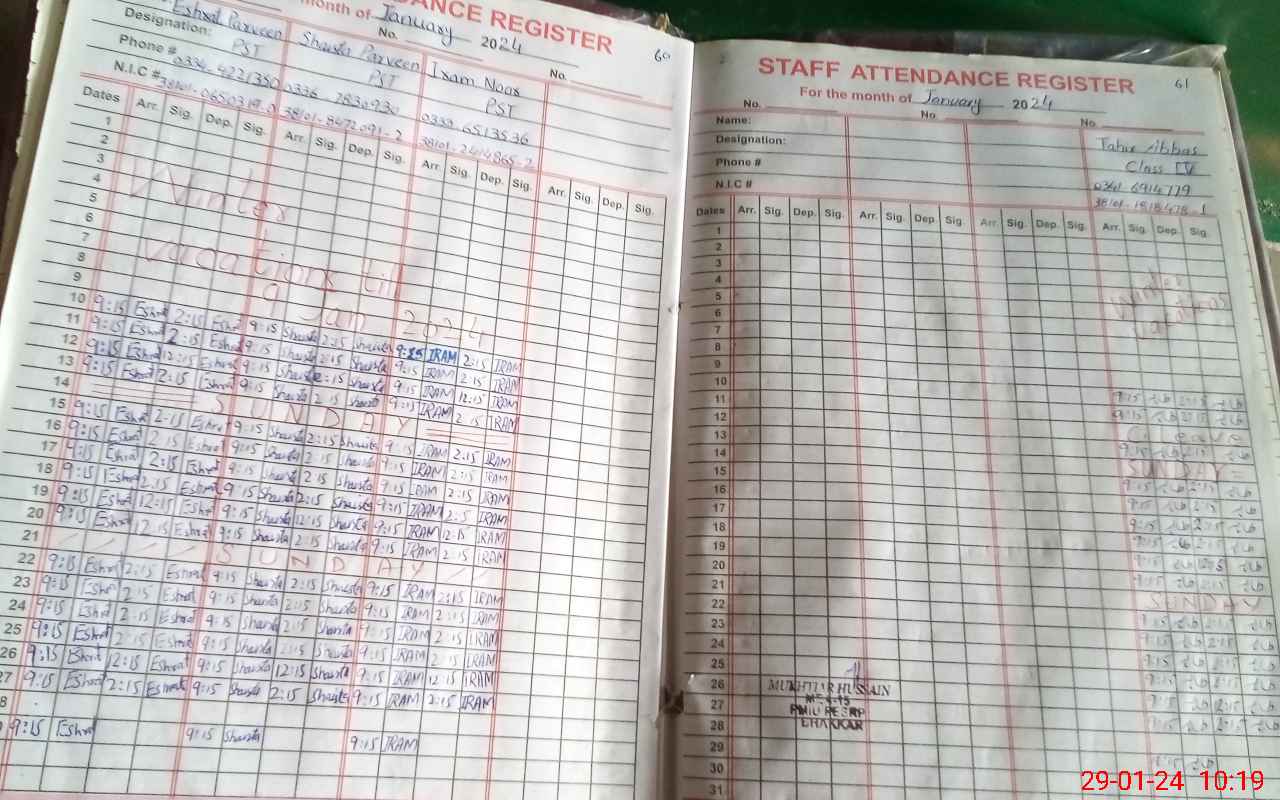 ATTENDANCE REGISTER
month of January 2024
60
No.
No.
Eshrat Parveen
Shaista Parveen
Iram Noor
Designation:
PST
PST
PST
Phone #
0334-4221350
0336 7830930
0333-6513536
N.I.C #
38101-8472091-2
38101-2414865-2
Dates Arr. Sig. Dep. Sig. Arr. Sig. Dep. Sig. Arr. Sig. Dep. Sig. Arr. Sig. Dep. Sig.
1
2
3
4
5
6
7
8
9
Winter
Vacations till
9 Jan 2024
10 9:15 Eshrat 2:15 Eshrat 9:15 Shaista 2:15 Shaista 9:15 IRAM 2:15 IRAM
11 9:15 Eshrat 2:15 Eshrat 9:15 Shaista 2:15 Shaista 9:15 IRAM 2:15 IRAM
12 9:15 Eshrat 12:15 Eshrat 9:15 Shaista 9:15 IRAM 12:15 IRAM
13 9:15 Eshrat 2:15 Eshrat 9:15 Shaista 2:15 Shaista 9:15 IRAM 2:15 IRAM
14 SUNDAY
15 9:15 Eshrat 2:15 Eshrat 9:15 Shaista 2:15 Shaista 9:15 IRAM 2:15 IRAM
16 9:15 Eshrat 2:15 Eshrat 9:15 Shaista 2:15 Shaista 9:15 IRAM 2:15 IRAM
17 9:15 Eshrat 2:15 Eshrat 9:15 Shaista 2:15 Shaista 9:15 IRAM 2:15 IRAM
18 9:15 Eshrat 2:15 Eshrat 9:15 Shaista 2:15 Shaista 9:15 IRAM 2:15 IRAM
19 9:15 Eshrat 12:15 Eshrat 9:15 Shaista 12:15 Shaista 9:15 IRAM 12:15 IRAM
20 9:15 Eshrat 12:15 Eshrat 9:15 Shaista 2:15 Shaista 9:15 IRAM 2:15 IRAM
21 SUNDAY
22 9:15 Eshrat 2:15 Eshrat 9:15 Shaista 2:15 Shaista 9:15 IRAM 2:15 IRAM
23 9:15 Eshrat 2:15 Eshrat 9:15 Shaista 2:15 Shaista 9:15 IRAM 2:15 IRAM
24 9:15 Eshrat 2:15 Eshrat 9:15 Shaista 2:15 Shaista 9:15 IRAM 2:15 IRAM
25 9:15 Eshrat 2:15 Eshrat 9:15 Shaista 2:15 Shaista 9:15 IRAM 2:15 IRAM
26 9:15 Eshrat 12:15 Eshrat 9:15 Shaista 12:15 Shaista 9:15 IRAM 12:15 IRAM
27 9:15 Eshrat 2:15 Eshrat 9:15 Shaista 2:15 Shaista 9:15 IRAM 2:15 IRAM
9:15 Eshrat 9:15 Shaista 9:15 IRAM
STAFF ATTENDANCE REGISTER
61
For the month of January 2024
No. No. No.
Name: Tahir Abbas
Designation: Class IV
Phone # 0341-6914779
N.I.C # 38101-1818478-1
Dates Arr. Sig. Dep. Sig. Arr. Sig. Dep. Sig. Arr. Sig. Dep. Sig. Arr. Sig. Dep. Sig.
1
2
3
4
5
6
7
8
9
10
Winter
Vacations
11 9:15 2:15
12 9:15 2:15
13 C leave
14 9:15 2:15
15 SUNDAY
16 9:15 2:15
17 9:15 2:15
18 9:15 2:15
19 9:15 2:15
20 9:15
21 9:15 2:15
22 SUNDAY
23 9:15 2:15
24 9:15 2:15
25 9:15 2:15
26 9:15 2:15
27 9:15 2:15
28 9:15 2:15
29
30 9:15
31
MUKHTIAR HUSSAIN
PMIU PESRP
BHAKKAR
29-01-24 10:19